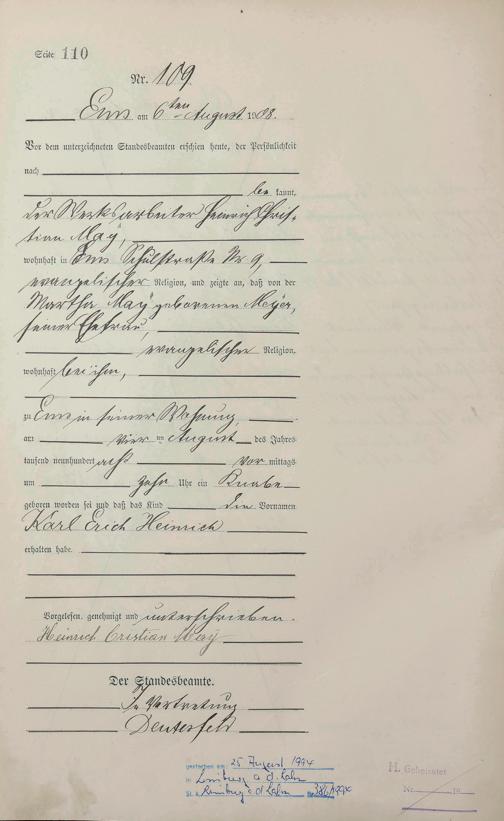 Seite 110
Nr. 109.
Ems am 6ten August 1908.
Vor dem unterzeichneten Standesbeamten erschien heute, der Persönlichkeit
nach
be kannt,
der Werksarbeiter Heinrich Chris-
tian May,
wohnhaft in Ems Schulstraße Nr 9,
evangelischer Religion, und zeigte an, daß von der
Martha May geborenen Meyer,
seiner Ehefrau,
evangelischer Religion,
wohnhaft bei ihm,
zu Ems in seiner Wohnung,
am vier ten August des Jahres
tausend neunhundert acht Vor mittags
um zehn Uhr ein Knabe
geboren worden sei und daß das Kind die Vornamen
Karl Erich Heinrich
erhalten habe.
Vorgelesen, genehmigt und unterschrieben.
Heinrich Cristian May
Der Standesbeamte.
In Vertretung
gestorben am: 25 August 1994
in Limburg a d. Lahn
St. A. Limburg a d Lahn
Nr. 19